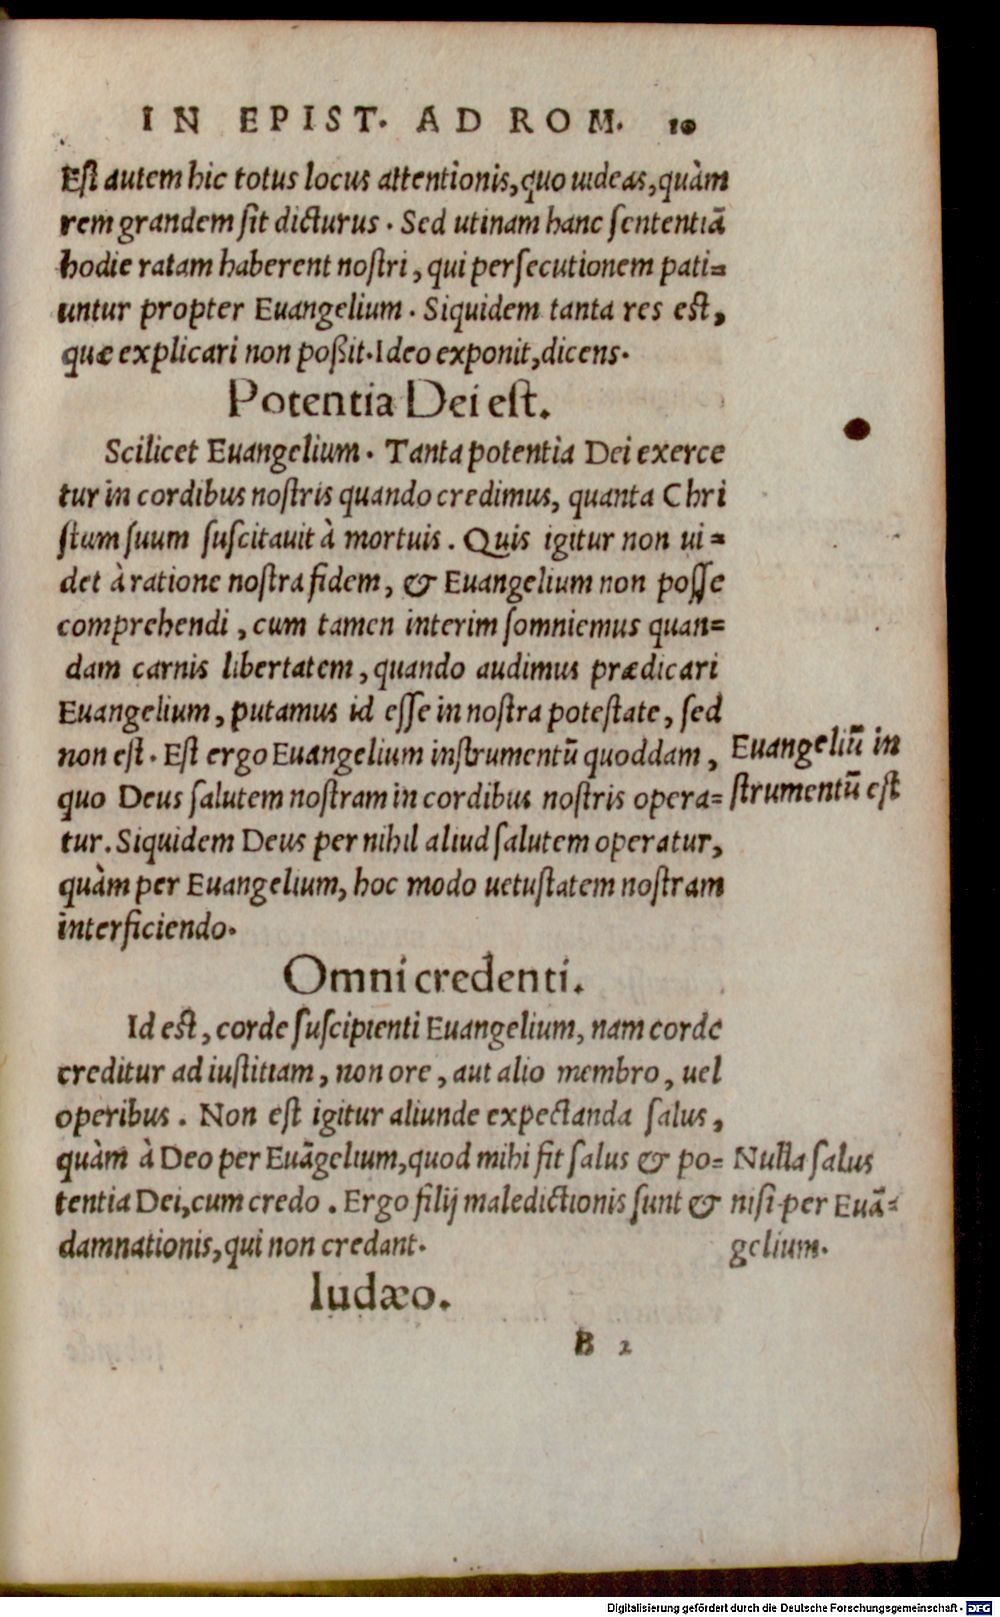 IN EPIST. AD ROM. 10
Est autem hic totus locus attentionis, quo uideas, quàm
rem grandem sit dicturus. Sed utinam hanc sententiā
hodie ratam haberent nostri, qui persecutionem pati=
untur propter Euangelium. Siquidem tanta res est,
quæ explicari non poßit. Ideo exponit, dicens.
Potentia Dei est.
Scilicet Euangelium. Tanta potentia Dei exerce
tur in cordibus nostris quando credimus, quanta Chri
stum suum suscitauit à mortuis. Quis igitur non ui=
det à ratione nostra fidem, & Euangelium non posse
comprehendi, cum tamen interim somniemus quan=
dam carnis libertatem, quando audimus prædicari
Euangelium, putamus id esse in nostra potestate, sed
non est. Est ergo Euangelium instrumentū quoddam,
quo Deus salutem nostram in cordibus nostris opera=
tur. Siquidem Deus per nihil aliud salutem operatur,
quàm per Euangelium, hoc modo uetustatem nostram
interficiendo.
Euangeliū in
strumentū est
Omni credenti.
Id est, corde suscipienti Euangelium, nam corde
creditur ad iustitiam, non ore, aut alio membro, uel
operibus. Non est igitur aliunde expectanda salus,
quàm à Deo per Euāgelium, quod mihi fit salus & po=
tentia Dei, cum credo. Ergo filij maledictionis sunt &
damnationis, qui non credant.
Nulla salus
nisi per Euā=
gelium.
Iudæo.
B 2
Digitalisierung gefördert durch die Deutsche Forschungsgemeinschaft - DFG